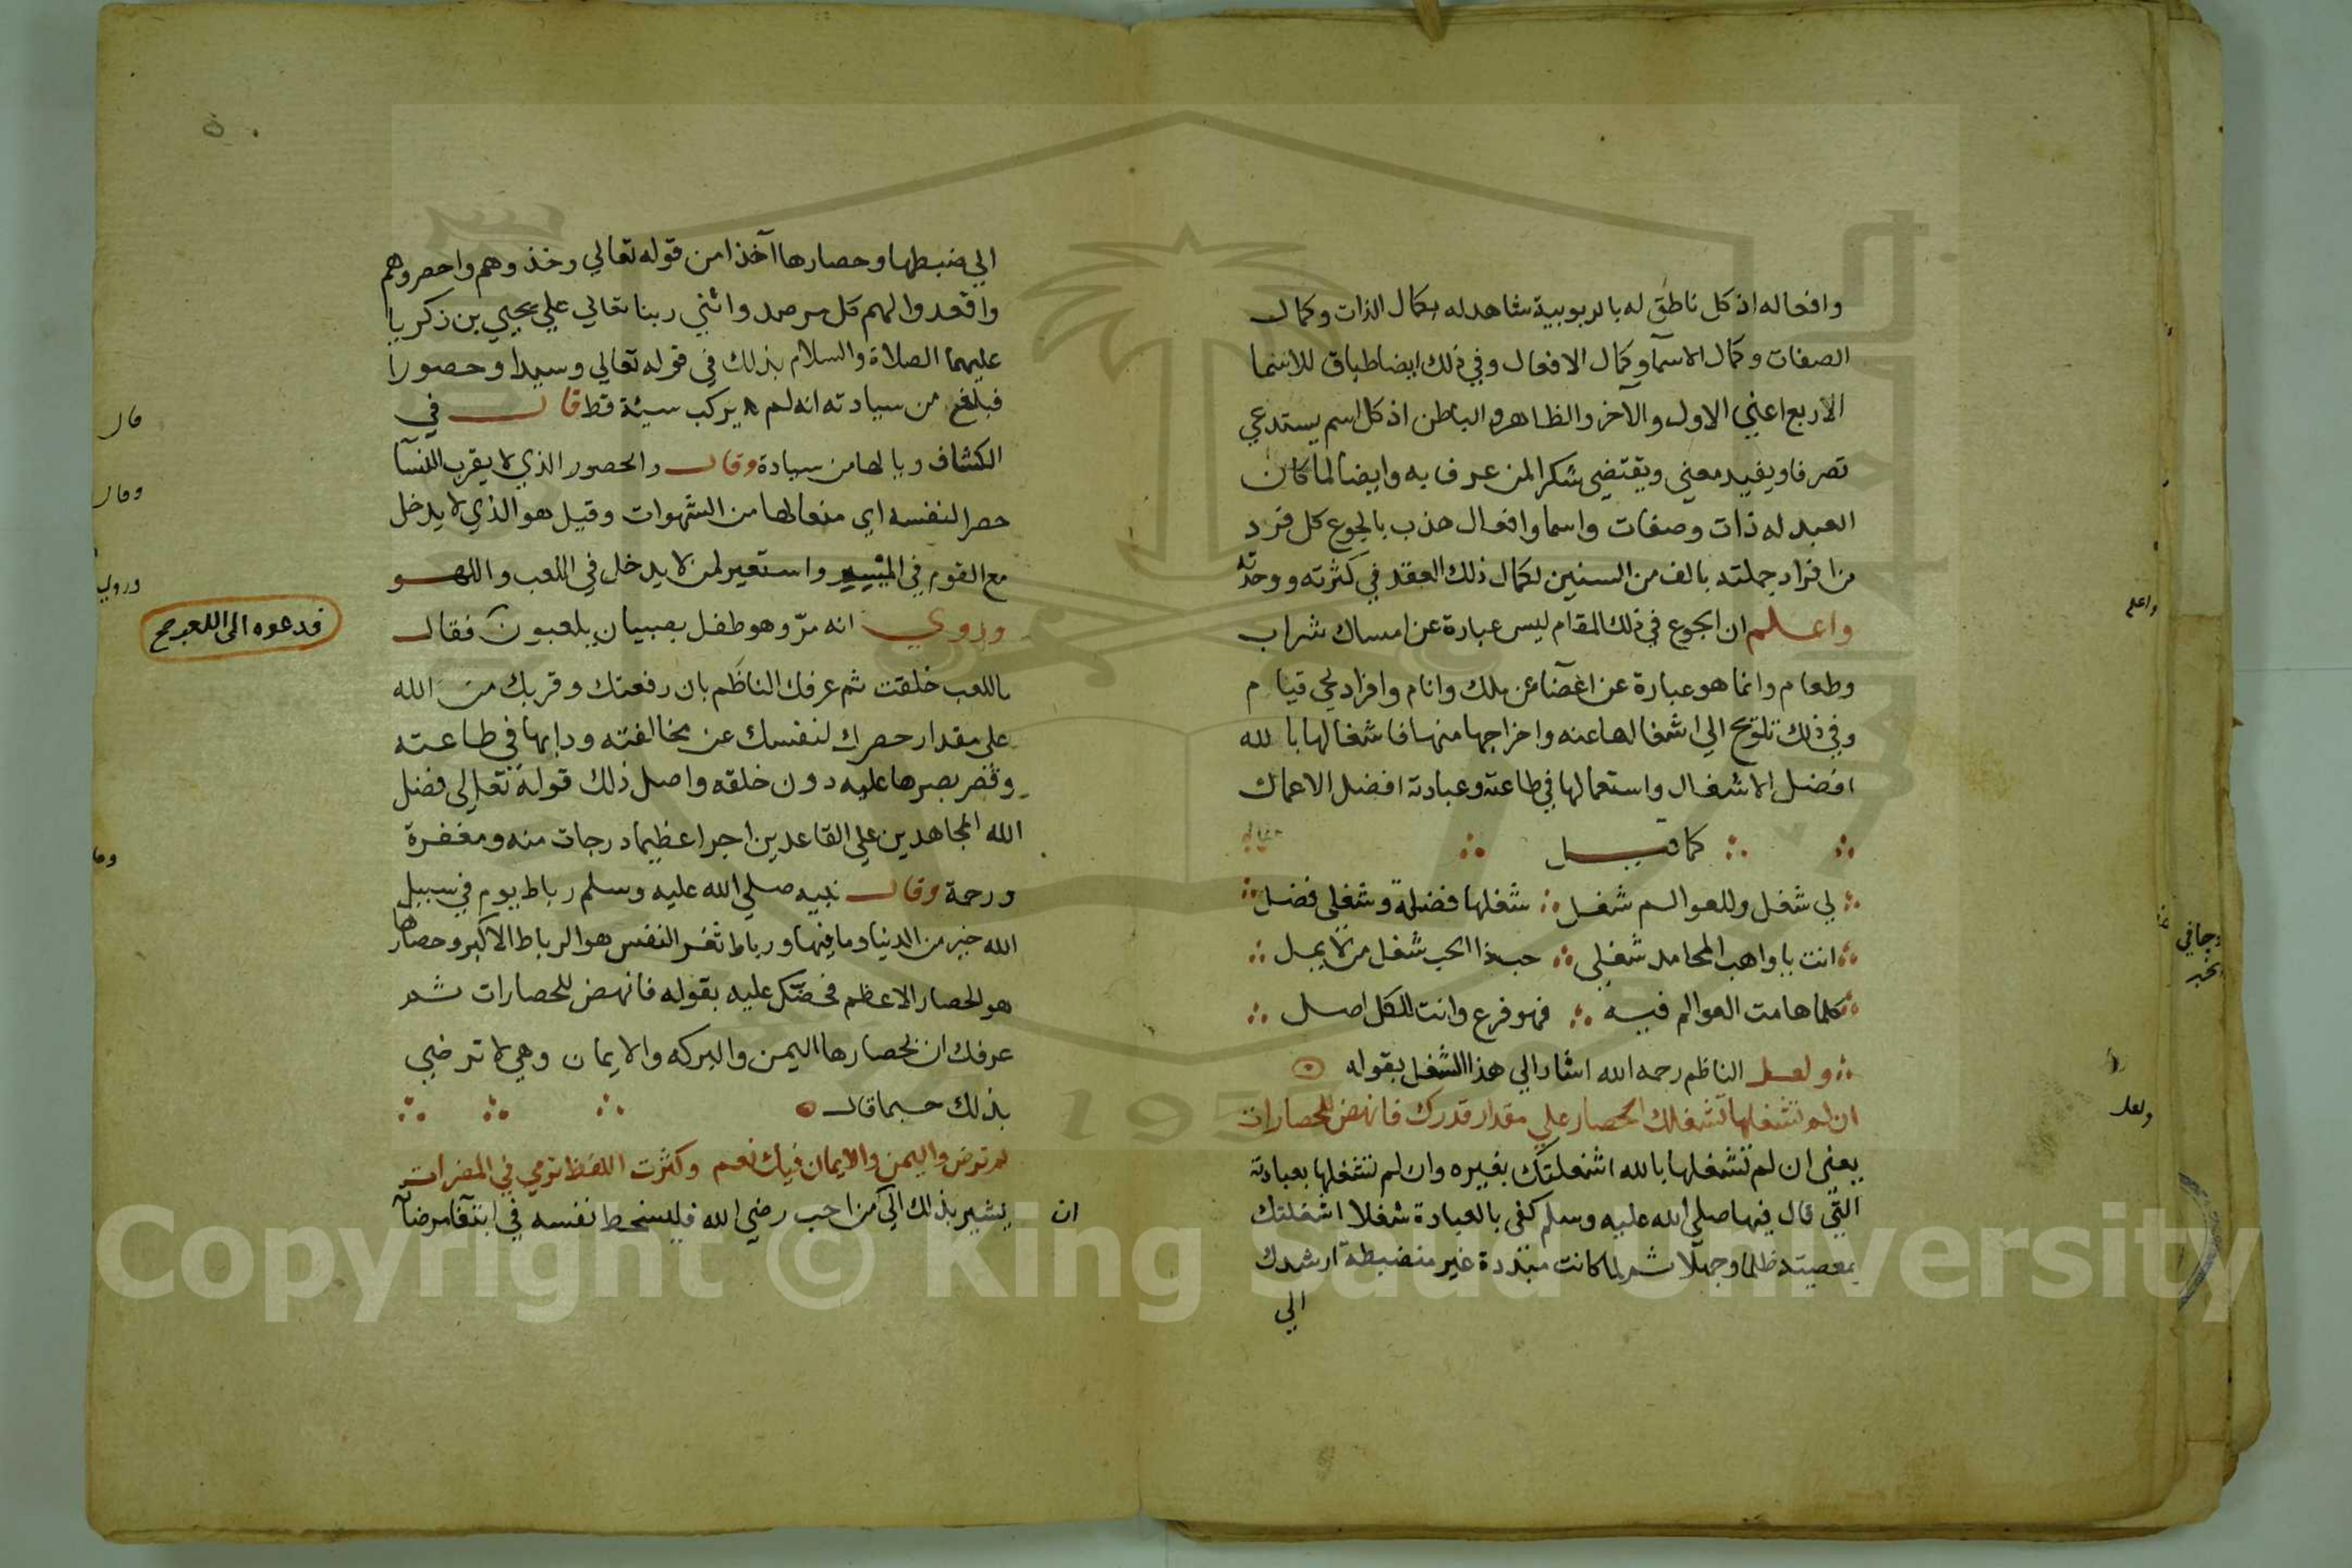 وافعاله اذ كل ناطق له بالربوبية شاهد له بكمال الذات وكمال
الصفات وكمال الاسمآ وكمال الافعال وفي ذلك ايضا طباق للاسما
الاربع اعني الاول والآخر والظاهر والباطن اذ كل اسم يستدعي
تصرفا ويفيد معني ويقتضي شكرا لمن عرف به وايضا لما كان
العبد له ذات وصفات واسما وافعال هذب بالجوع كل فرد
من افراد جملته بالف من السنين لكمال ذلك العقد في كثرته ووحدته
واعلم ان الجوع في ذلك المقام ليس عبارة عن امساك شراب
وطعام وانما هو عبارة عن اغضآ عن ملك وانام وافراد لحي قيام
وفي ذلك تلويح الي اشغالها عنه واخراجها منها فاشغالها بالله
افضل الاشغال واستعمالها في طاعته وعبادته افضل الاعمال
كما قيل
لي شغل وللعوالم شغل شغلها فضلة وشغلي فضل
انت يا واهب المحامد شغلي حبذا الحب شغل من لا يمل
كلما هامت العوالم فيه فهو فرع وانت للكل اصل
ولعل الناظم رحمه الله اشار الي هذا الشغل بقوله
ان لم تشغلها تشغلك الحصار علي مقدار قدرك فانهض للحصارات
يعني ان لم تشغلها بالله اشغلتك بغيره وان لم تشغلها بعبادته
التي قال فيها صلي الله عليه وسلم كفى بالعبادة شغلا اشغلتك
بمعصيته ظلما وجهلا ثم لما كانت متبددة غير منضبطة ارشدك
الي
واعلم
وجافي
ولعل
الي ضبطها وحصارها آخذا من قوله تعالي وخذوهم واحصروهم
واقعدوا لهم كل مرصد واثني ربنا تعالي علي يحيي بن زكريا
عليهما الصلاة والسلام بذلك في قوله تعالي وسيدا وحصورا
فبلغ من سيادته انه لم يركب سيئة قط قال في
الكشاف ويالها من سيادة وقال والحصور الذي لا يقرب النسآ
حصرا لنفسه اي منعا لها من الشهوات وقيل هو الذي لا يدخل
مع القوم في الميسر واستعير لمن لا يدخل في اللعب واللهو
وروي انه مرّ وهو طفل بصبيان يلعبون فقال
فدعوه الى اللعب صح
ما للعب خلقت ثم عرفك الناظم بان رفعتك وقربك من الله
علي مقدار حصرك لنفسك عن مخالفته ودابها في طاعته
وقصر بصرها عليه دون خلقه واصل ذلك قوله تعالي فضل
الله المجاهدين علي القاعدين اجرا عظيما درجات منه ومغفرة
ورحمة وقال نبيه صلي الله عليه وسلم رباط يوم في سبيل
الله خير من الدنيا وما فيها ورباط ثغر النفس هو الرباط الاكبر وحصارها
هو الحصار الاعظم فحضك عليه بقوله فانهض للحصارات ثم
عرفك ان بحصارها اليمن والبركه والايمان وهي لا ترضي
بذلك حسبما قال
لم ترض واليمن والايمان فيك نعم وكثرت اللفظ ترمي في المضرات
يشير بذلك الي من احب رضي الله فليسخط نفسه في ابتغآ مرضآ
ان
قال
وقال
وروي